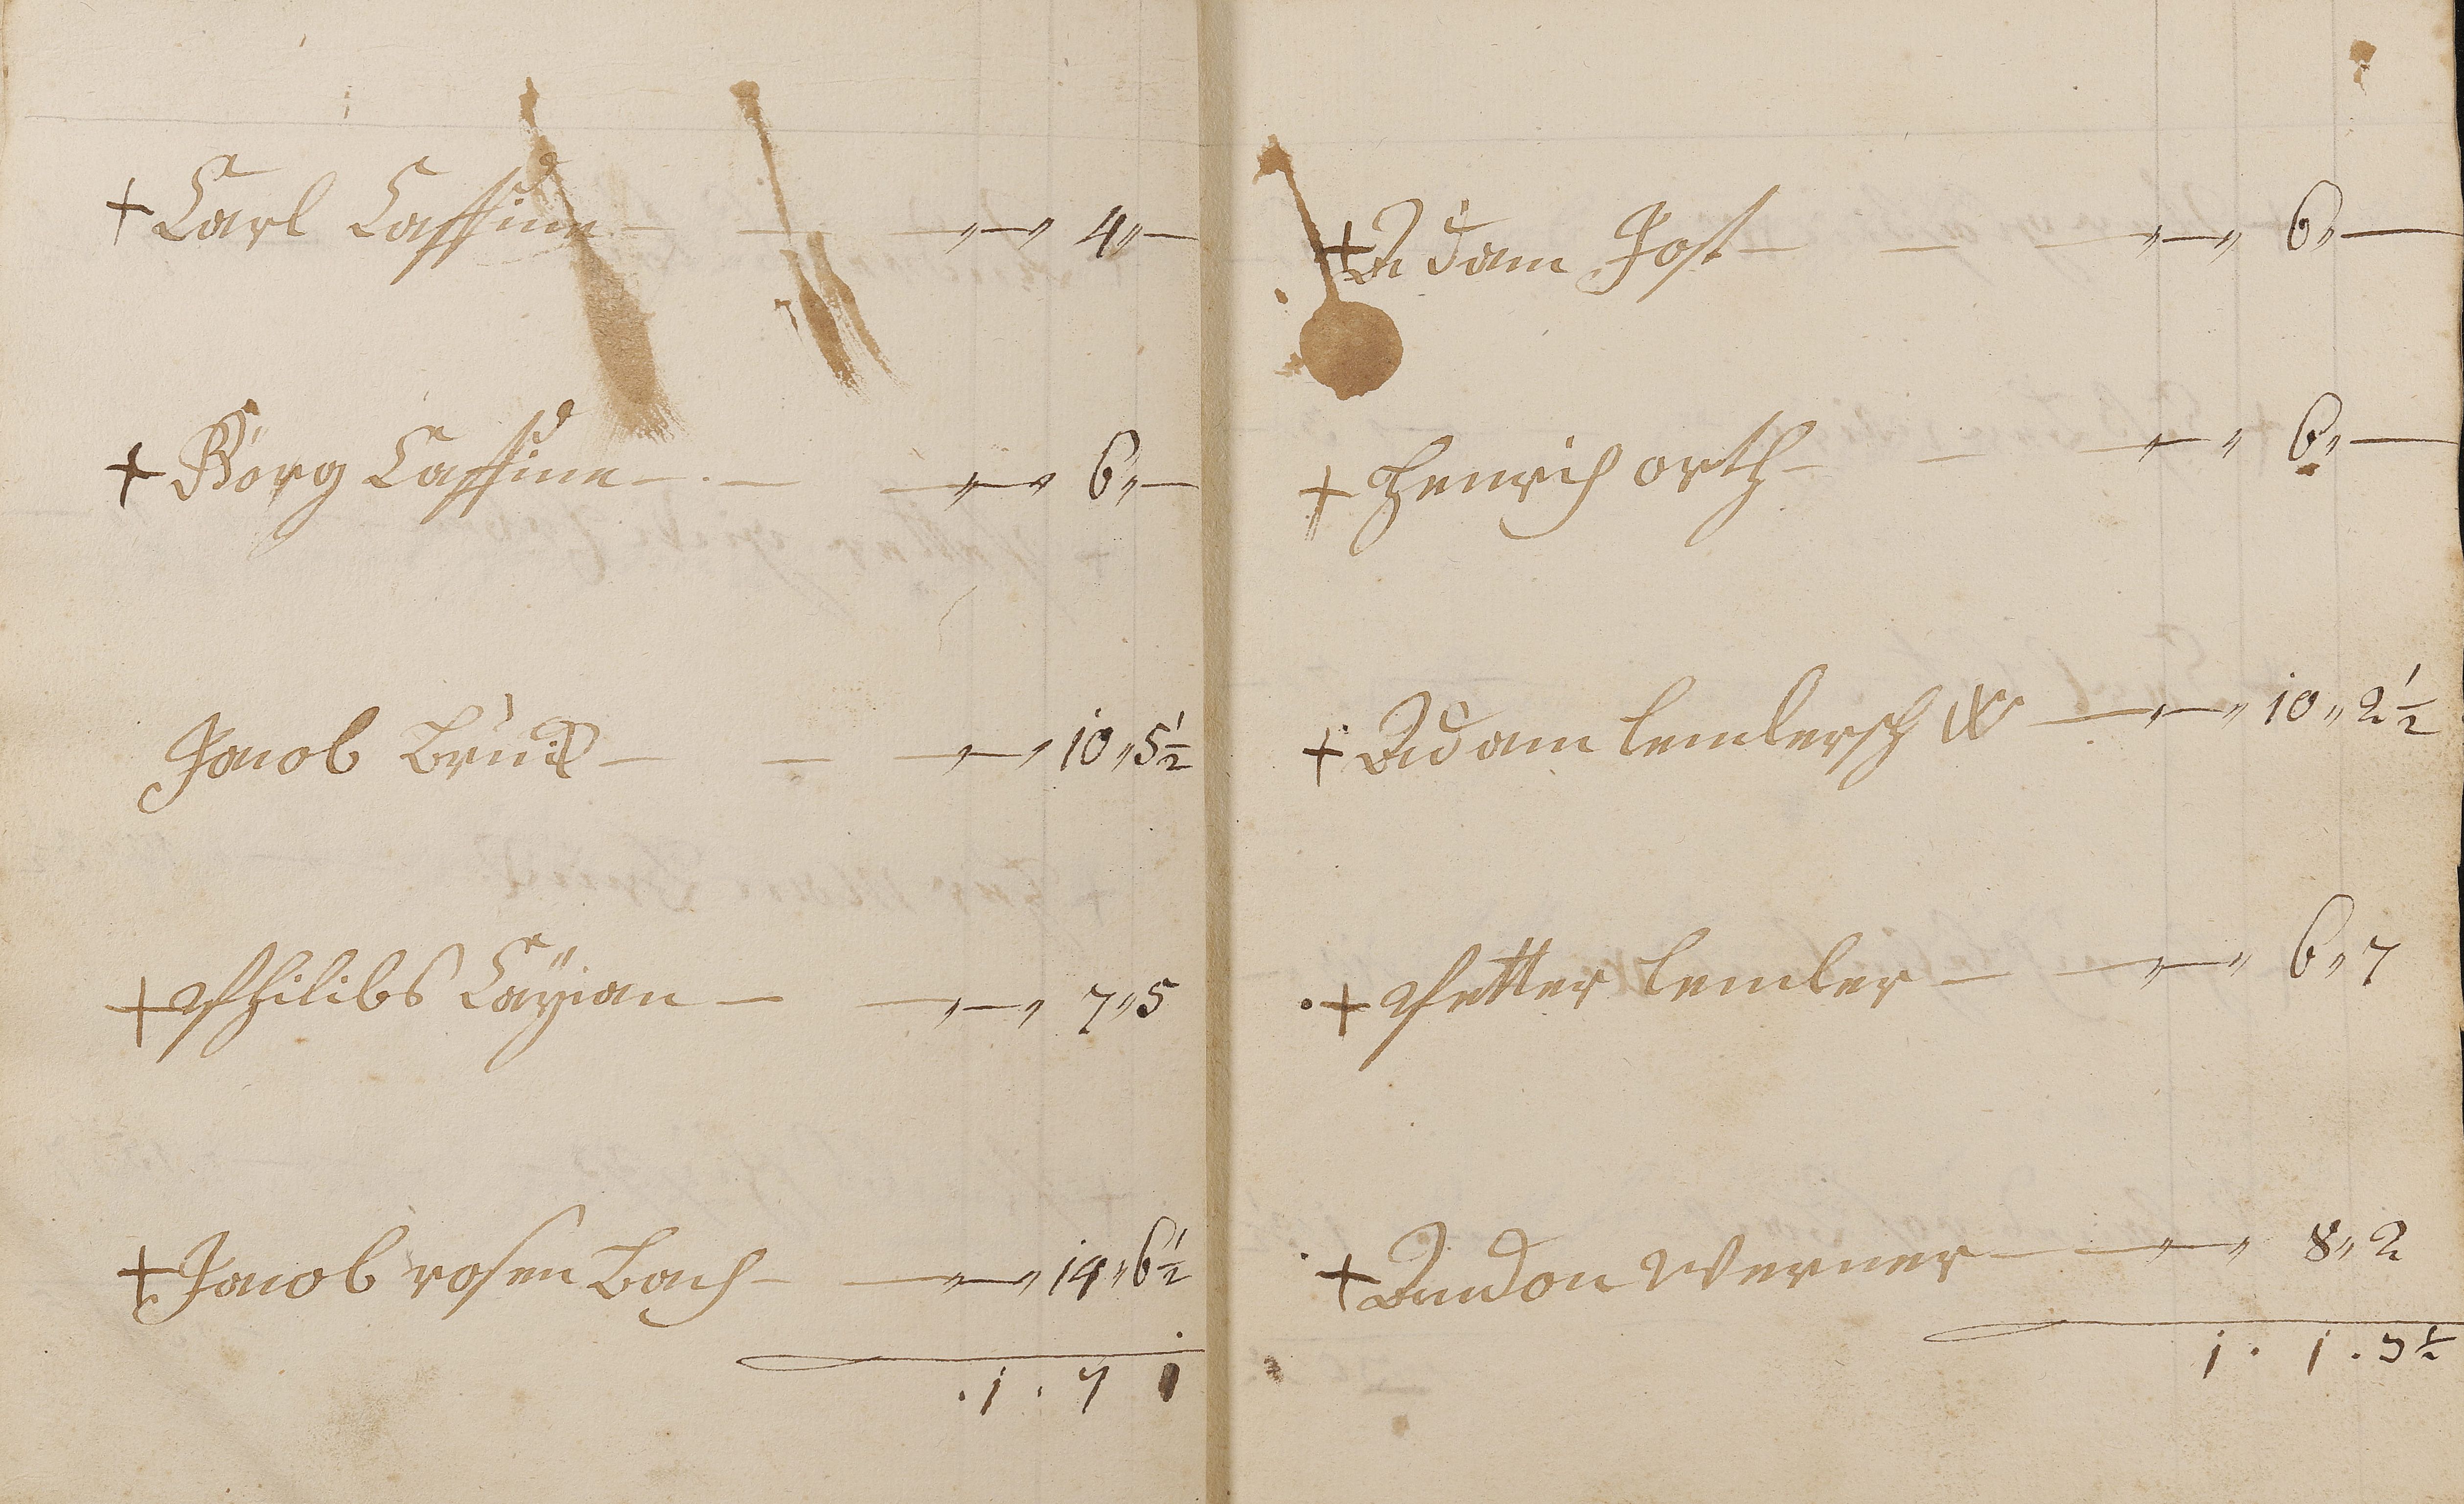 + Carl Cassine — — — „ — „ 4 „ —
+ Görg Cassine — . — — „ — „ 6 „ —
Jacob Brück — — — „ — „ 10 „ 5½
+ Philibs Caÿian — — „ — „ 7 „ 5
+ Jacob rosen Bach — — „ — „ 14 „ 6½
. 1 . 7 1
+ Adam Jost — — — „ — „ 6 „ —
+ Henrich orth — — — „ — „ 6 „ —
+ Adam lemlersch — „ — „ 10 „ 2½
+ Petter lemler — — „ — „ 6 „ 7
+ Andon Werner — — „ — „ 8 „ 2
1 . 1 . 3½